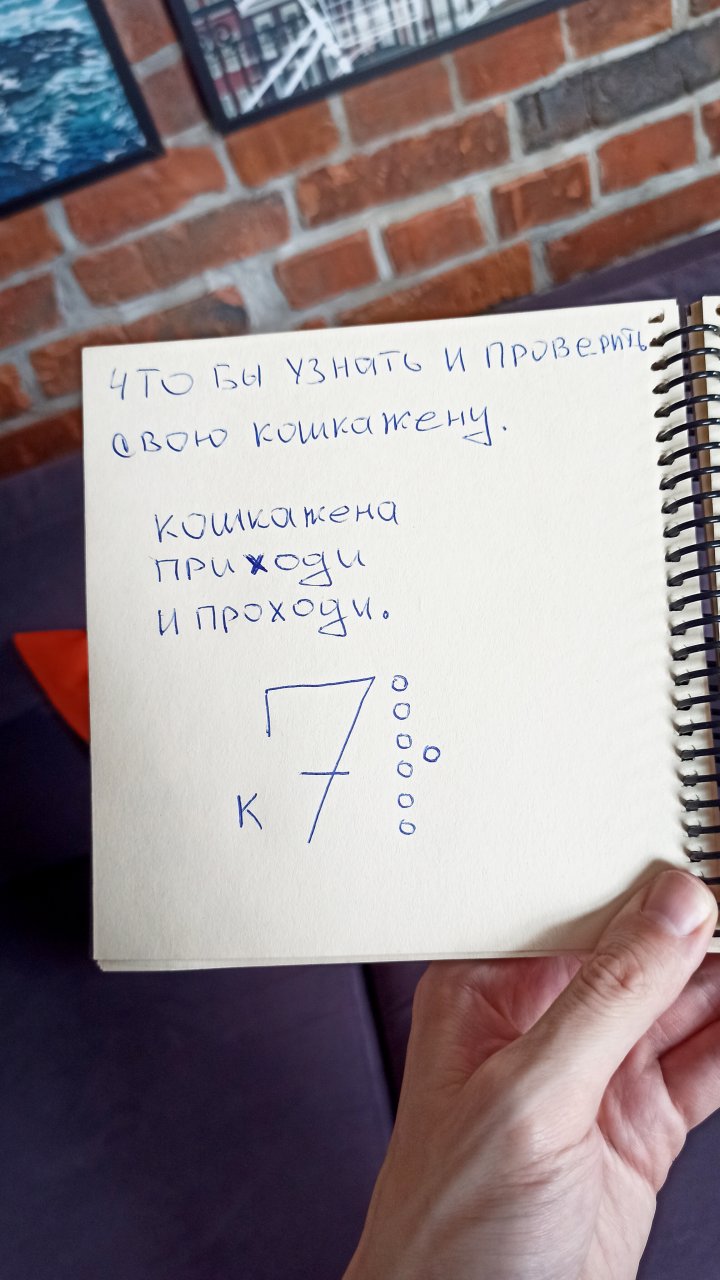 что бы узнать и проверить
свою кошкажену.
кошкажена
приходи
и проходи.
К 7